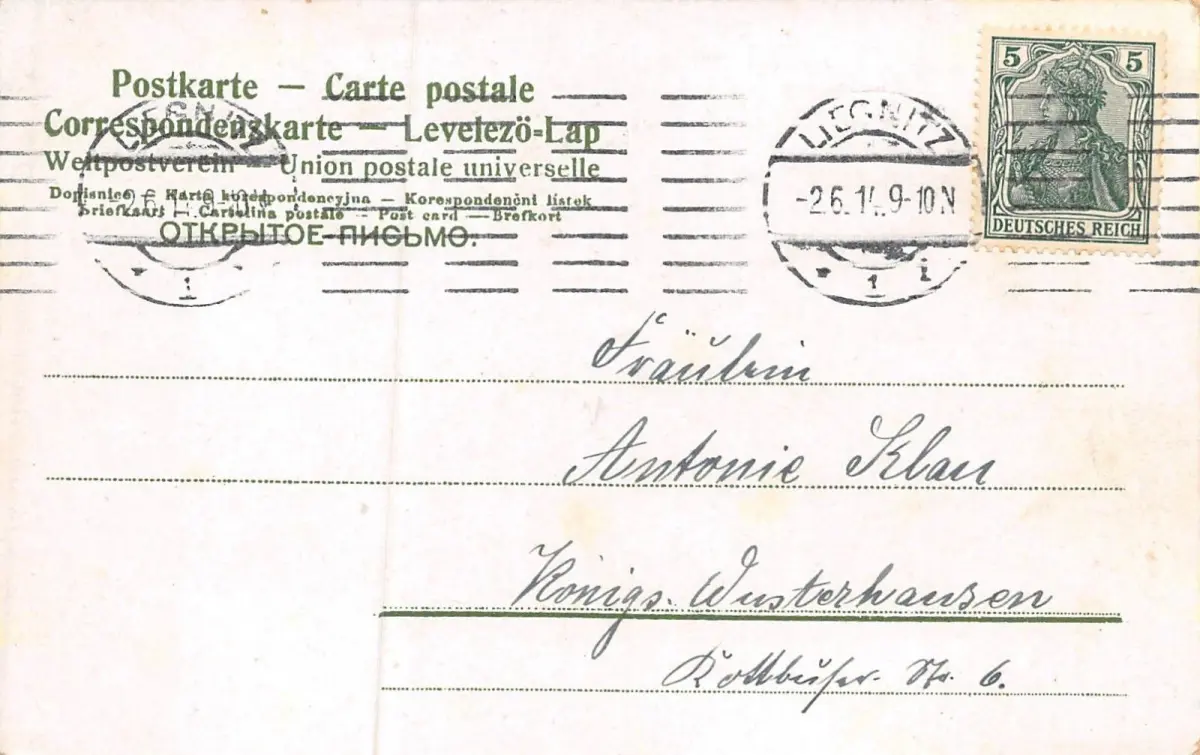 Postkarte — Carte postale
Correspondenzkarte — Levelező-Lap
Weltpostverein — Union postale universelle
Dopisnice — Karta korespondencyjna — Korespondenční listek
Briefkaart — Cartolina postale — Post card — Brefkort
ОТКРЫТОЕ ПИСЬМО.
LIEGNITZ
-2.6.14.9-10N
* 1 i
LIEGNITZ
* 1
5 5
DEUTSCHES REICH
Fräulein
Antonie Klau
Königs. Wusterhausen
Kottbuser. Str. 6.